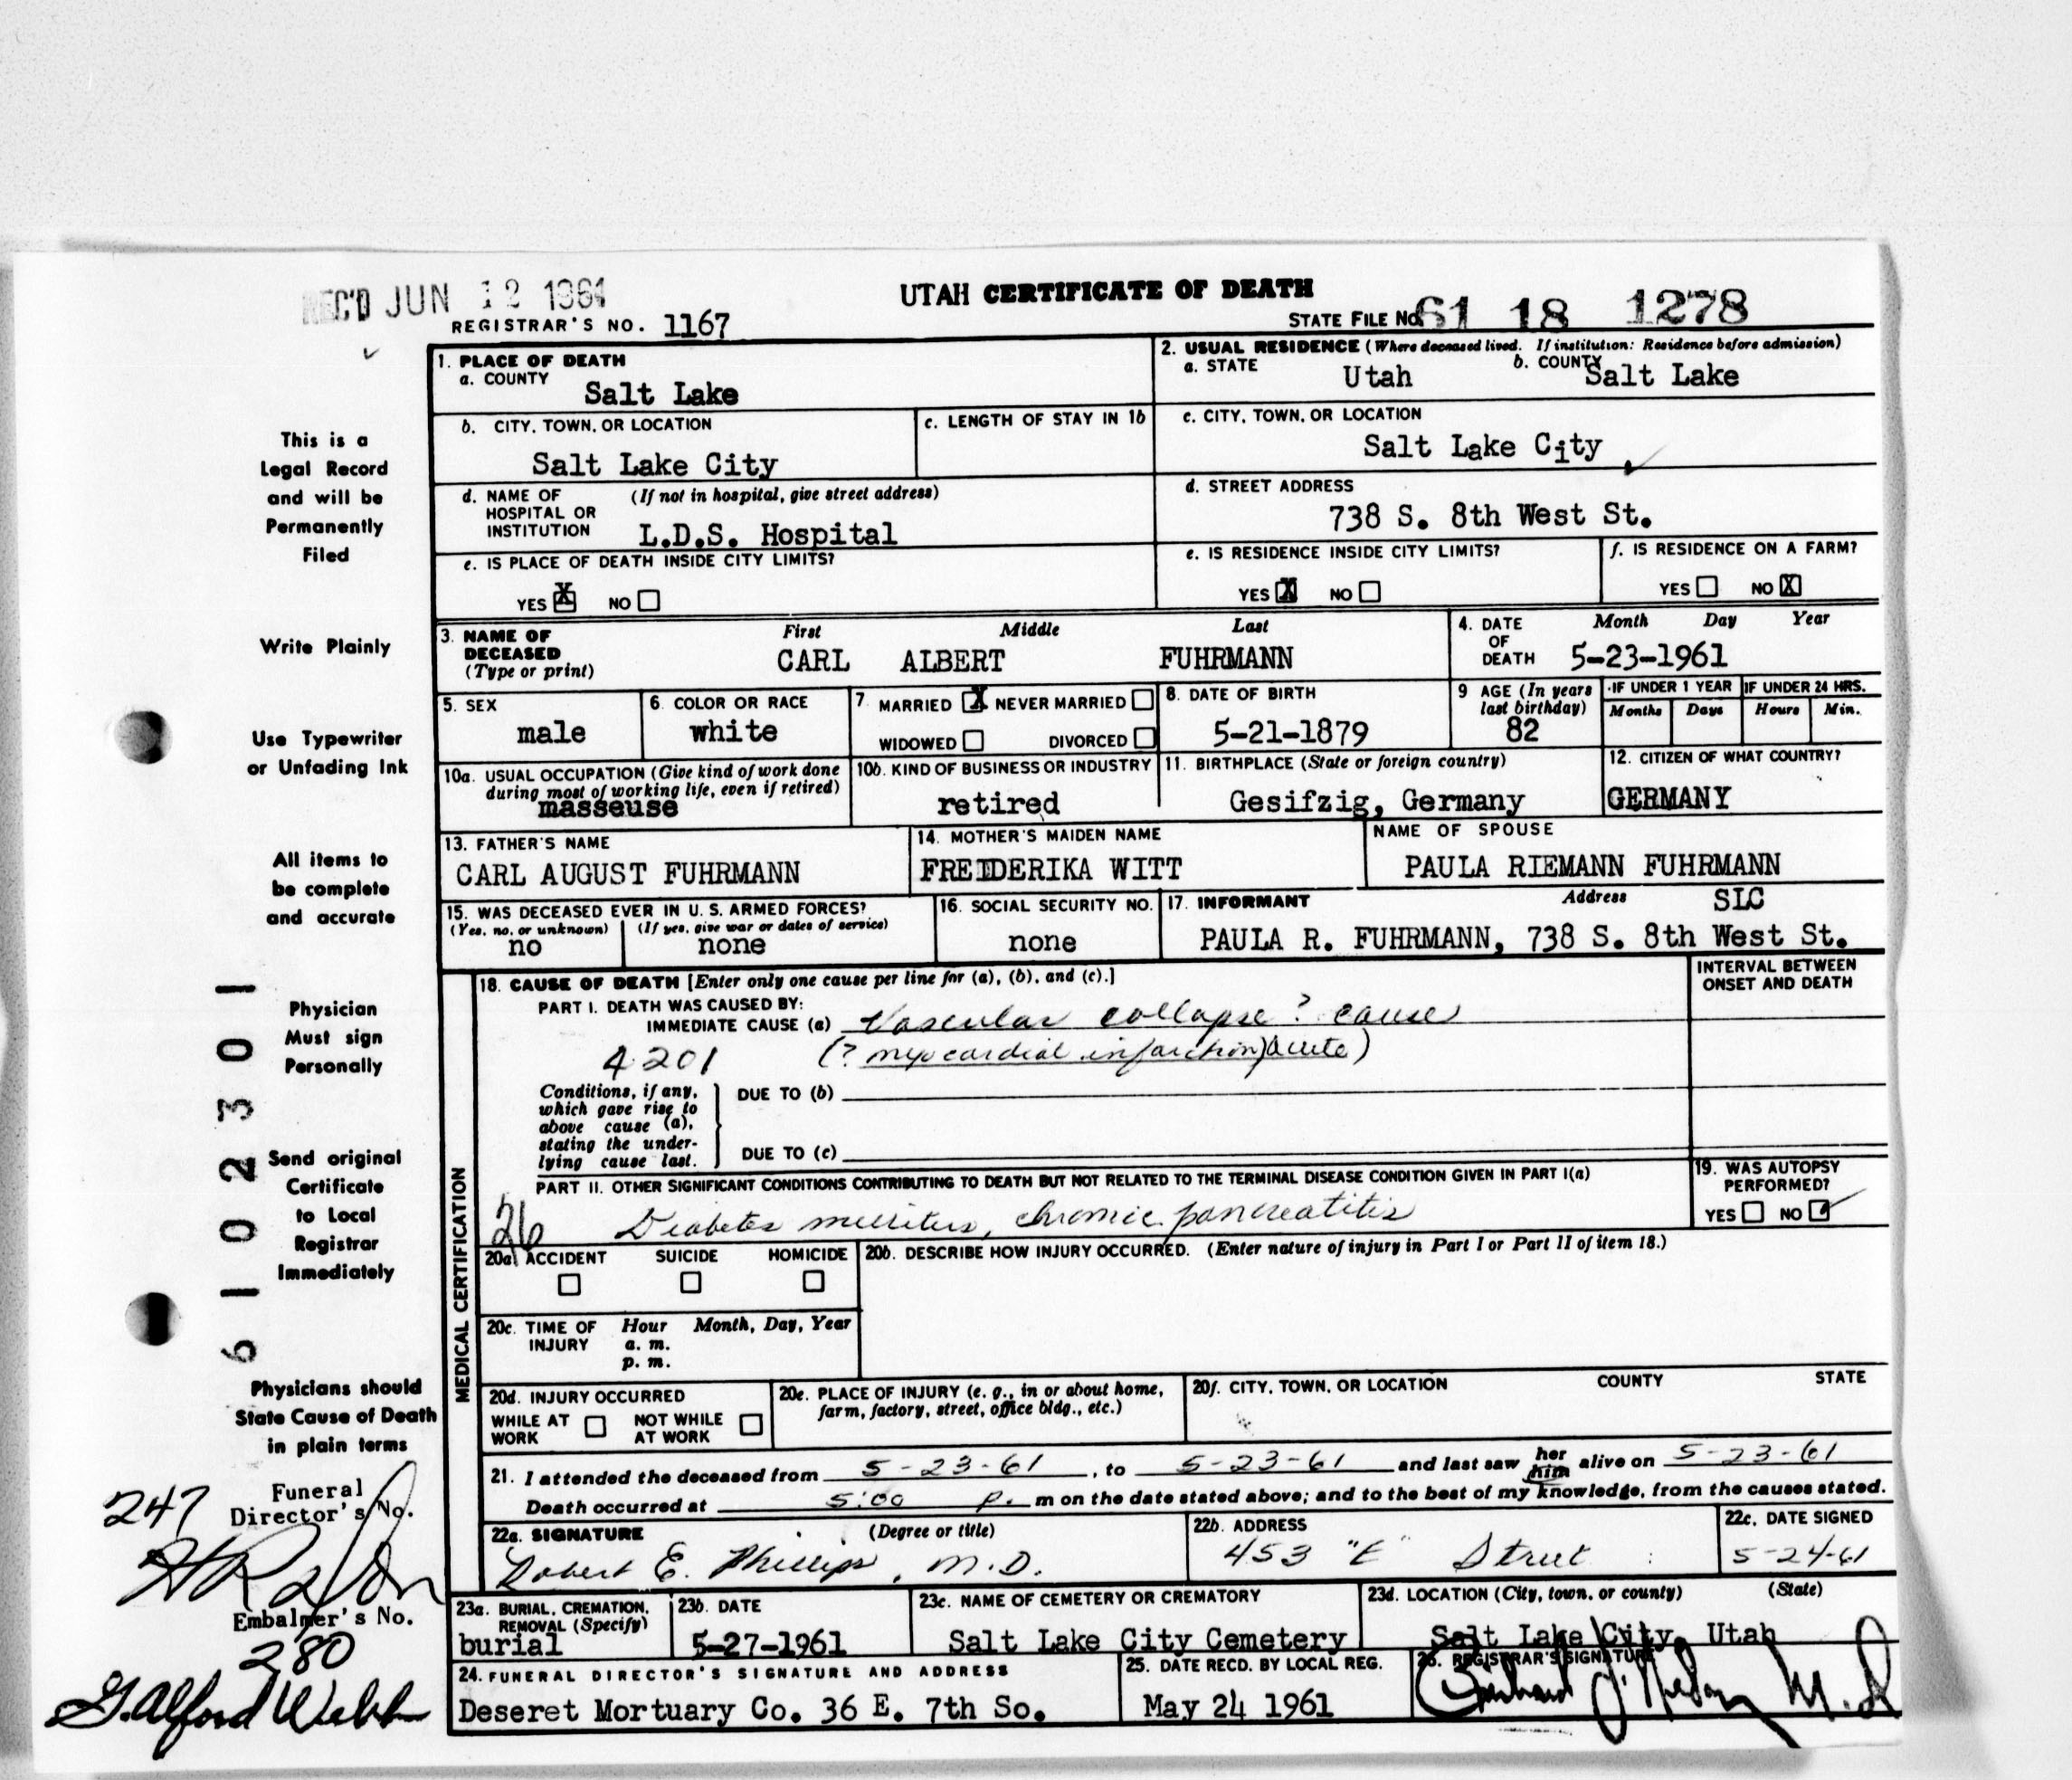 REC'D JUN 12 1961
UTAH CERTIFICATE OF DEATH
REGISTRAR'S NO. 1167
STATE FILE NO. 61 18 1278
1. PLACE OF DEATH
a. COUNTY
Salt Lake
2. USUAL RESIDENCE (Where deceased lived. If institution: Residence before admission)
a. STATE Utah b. COUNTY Salt Lake
b. CITY, TOWN, OR LOCATION
Salt Lake City
c. LENGTH OF STAY IN 1b
c. CITY, TOWN, OR LOCATION
Salt Lake City
d. NAME OF HOSPITAL OR INSTITUTION (If not in hospital, give street address)
L.D.S. Hospital
d. STREET ADDRESS
738 S. 8th West St.
e. IS PLACE OF DEATH INSIDE CITY LIMITS?
YES X NO
e. IS RESIDENCE INSIDE CITY LIMITS?
YES X NO
f. IS RESIDENCE ON A FARM?
YES NO X
3. NAME OF DECEASED (Type or print)
First Middle Last
CARL ALBERT FUHRMANN
4. DATE OF DEATH Month Day Year
5-23-1961
5. SEX
male
6. COLOR OR RACE
white
7. MARRIED X NEVER MARRIED
WIDOWED DIVORCED
8. DATE OF BIRTH
5-21-1879
9 AGE (In years last birthday)
82
IF UNDER 1 YEAR
Months Days
IF UNDER 24 HRS.
Hours Min.
10a. USUAL OCCUPATION (Give kind of work done during most of working life, even if retired)
masseuse
10b. KIND OF BUSINESS OR INDUSTRY
retired
11. BIRTHPLACE (State or foreign country)
Gesifzig, Germany
12. CITIZEN OF WHAT COUNTRY?
GERMANY
13. FATHER'S NAME
CARL AUGUST FUHRMANN
14. MOTHER'S MAIDEN NAME
FREIDERIKA WITT
NAME OF SPOUSE
PAULA RIEMANN FUHRMANN
15. WAS DECEASED EVER IN U. S. ARMED FORCES?
(Yes, no, or unknown) (If yes, give war or dates of service)
no none
16. SOCIAL SECURITY NO.
none
17. INFORMANT Address SLC
PAULA R. FUHRMANN, 738 S. 8th West St.
MEDICAL CERTIFICATION
18. CAUSE OF DEATH [Enter only one cause per line for (a), (b), and (c).]
INTERVAL BETWEEN ONSET AND DEATH
PART I. DEATH WAS CAUSED BY:
IMMEDIATE CAUSE (a) Vascular collapse ? cause
4201 (? myocardial infarction) acute)
Conditions, if any, which gave rise to above cause (a), stating the underlying cause last.
DUE TO (b)
DUE TO (c)
PART II. OTHER SIGNIFICANT CONDITIONS CONTRIBUTING TO DEATH BUT NOT RELATED TO THE TERMINAL DISEASE CONDITION GIVEN IN PART I(a)
26 Diabetes mellitus, chronic pancreatitis
19. WAS AUTOPSY PERFORMED?
YES NO ✓
20a. ACCIDENT SUICIDE HOMICIDE
20b. DESCRIBE HOW INJURY OCCURRED. (Enter nature of injury in Part I or Part II of item 18.)
20c. TIME OF INJURY Hour Month, Day, Year
a. m.
p. m.
20d. INJURY OCCURRED
WHILE AT WORK NOT WHILE AT WORK
20e. PLACE OF INJURY (e. g., in or about home, farm, factory, street, office bldg., etc.)
20f. CITY, TOWN, OR LOCATION COUNTY STATE
21. I attended the deceased from 5-23-61, to 5-23-61 and last saw her him alive on 5-23-61
Death occurred at 5:00 P. m on the date stated above; and to the best of my knowledge, from the causes stated.
22a. SIGNATURE (Degree or title)
Robert E. Phillips, M.D.
22b. ADDRESS
453 "E" Street
22c. DATE SIGNED
5-24-61
23a. BURIAL, CREMATION, REMOVAL (Specify)
burial
23b. DATE
5-27-1961
23c. NAME OF CEMETERY OR CREMATORY
Salt Lake City Cemetery
23d. LOCATION (City, town, or county) (State)
Salt Lake City, Utah
24. FUNERAL DIRECTOR'S SIGNATURE AND ADDRESS
Deseret Mortuary Co. 36 E. 7th So.
25. DATE RECD. BY LOCAL REG.
May 24 1961
26. REGISTRAR'S SIGNATURE
M.D
This is a
Legal Record
and will be
Permanently
Filed
Write Plainly
Use Typewriter
or Unfading Ink
All items to
be complete
and accurate
Physician
Must sign
Personally
Send original
Certificate
to Local
Registrar
Immediately
Physicians should
State Cause of Death
in plain terms
6102301
Funeral
Director's No.
247
Embalmer's No.
280
G. Alford Webb